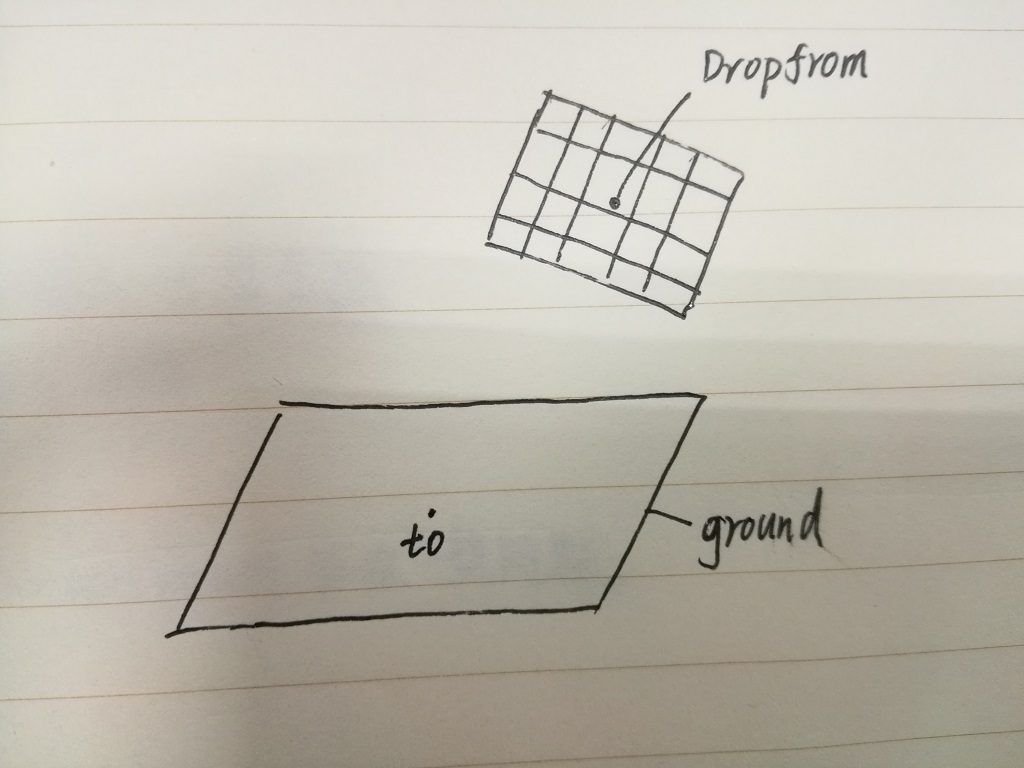 Dropfrom
to
ground